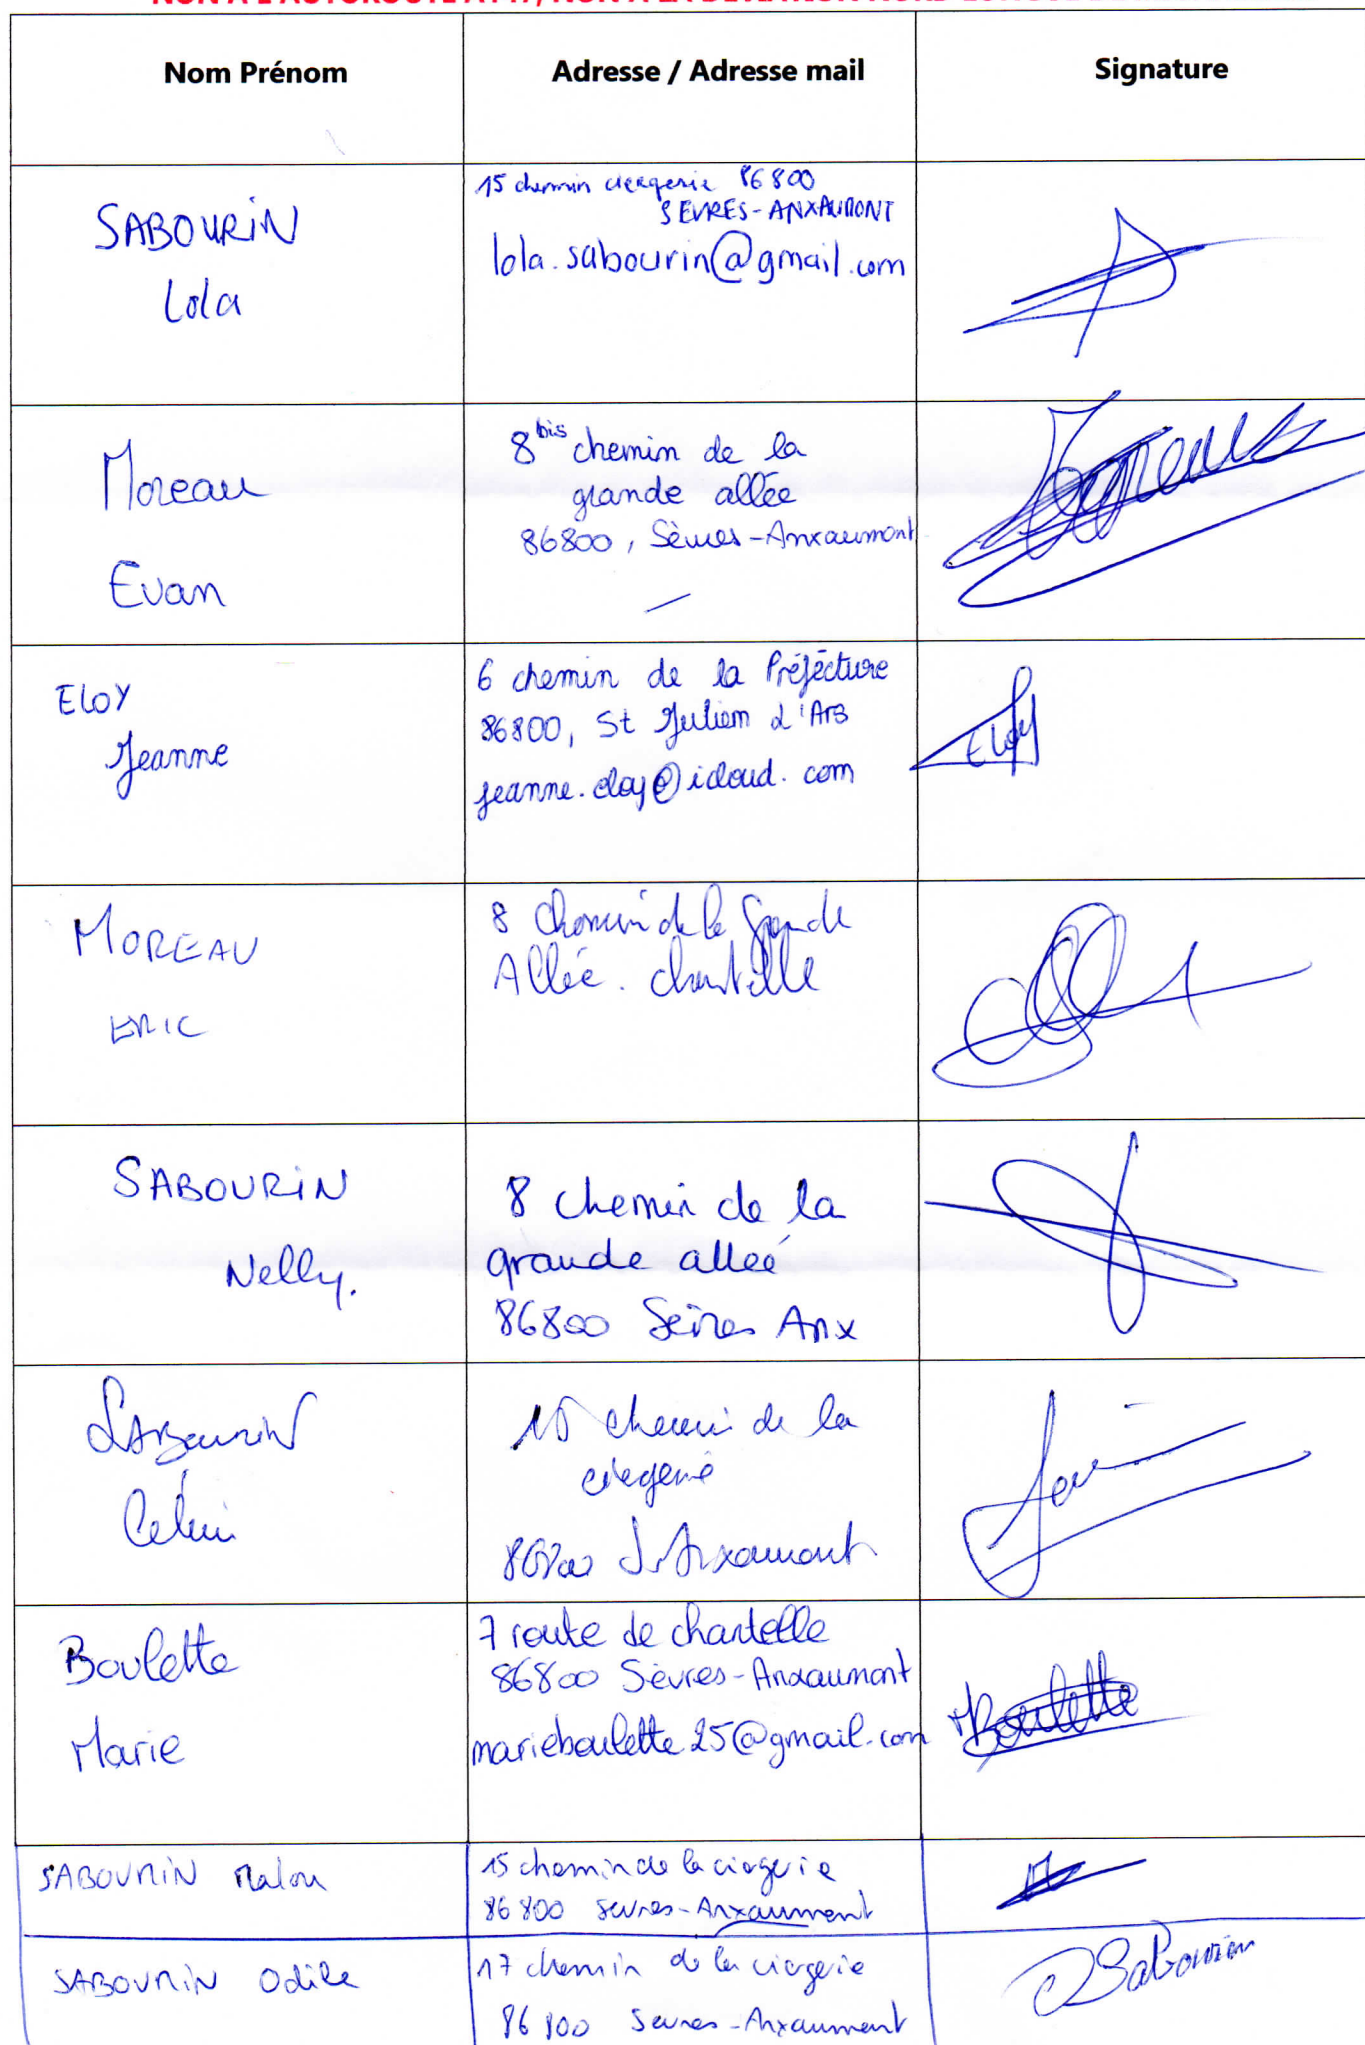 NON A L'AUTOROUTE A147, NON A LA DEVIATION NORD-EST
Nom Prénom
Adresse / Adresse mail
Signature
SABOURIN
Lola
15 chemin ciergerie 86800
SEVRES-ANXAUMONT
lola.sabourin@gmail.com
Moreau
Evan
8 bis chemin de la
grande allée
86800, Sèvres-Anxaumont
Moreau
ELOY
Jeanne
6 chemin de la Préfécture
86800, St Julien d'Ars
jeanne.eloy@icloud.com
Eloy
MOREAU
ERIC
8 Chemin de la Grande
Allée. chantelle
SABOURIN
Nelly.
8 chemin de la
grande allée
86800 Sèvres Anx
SABOURIN
15 chemin de la
ciergerie
86800 S. Anxaumont
Boulette
Marie
7 route de chantelle
86800 Sèvres-Anxaumont
marieboulette25@gmail.com
Boulette
SABOURIN Malou
15 chemin de la ciergerie
86800 Sevres-Anxaumont
SABOURIN Odile
17 chemin de la ciergerie
86800 Sevres-Anxaumont
Sabourin